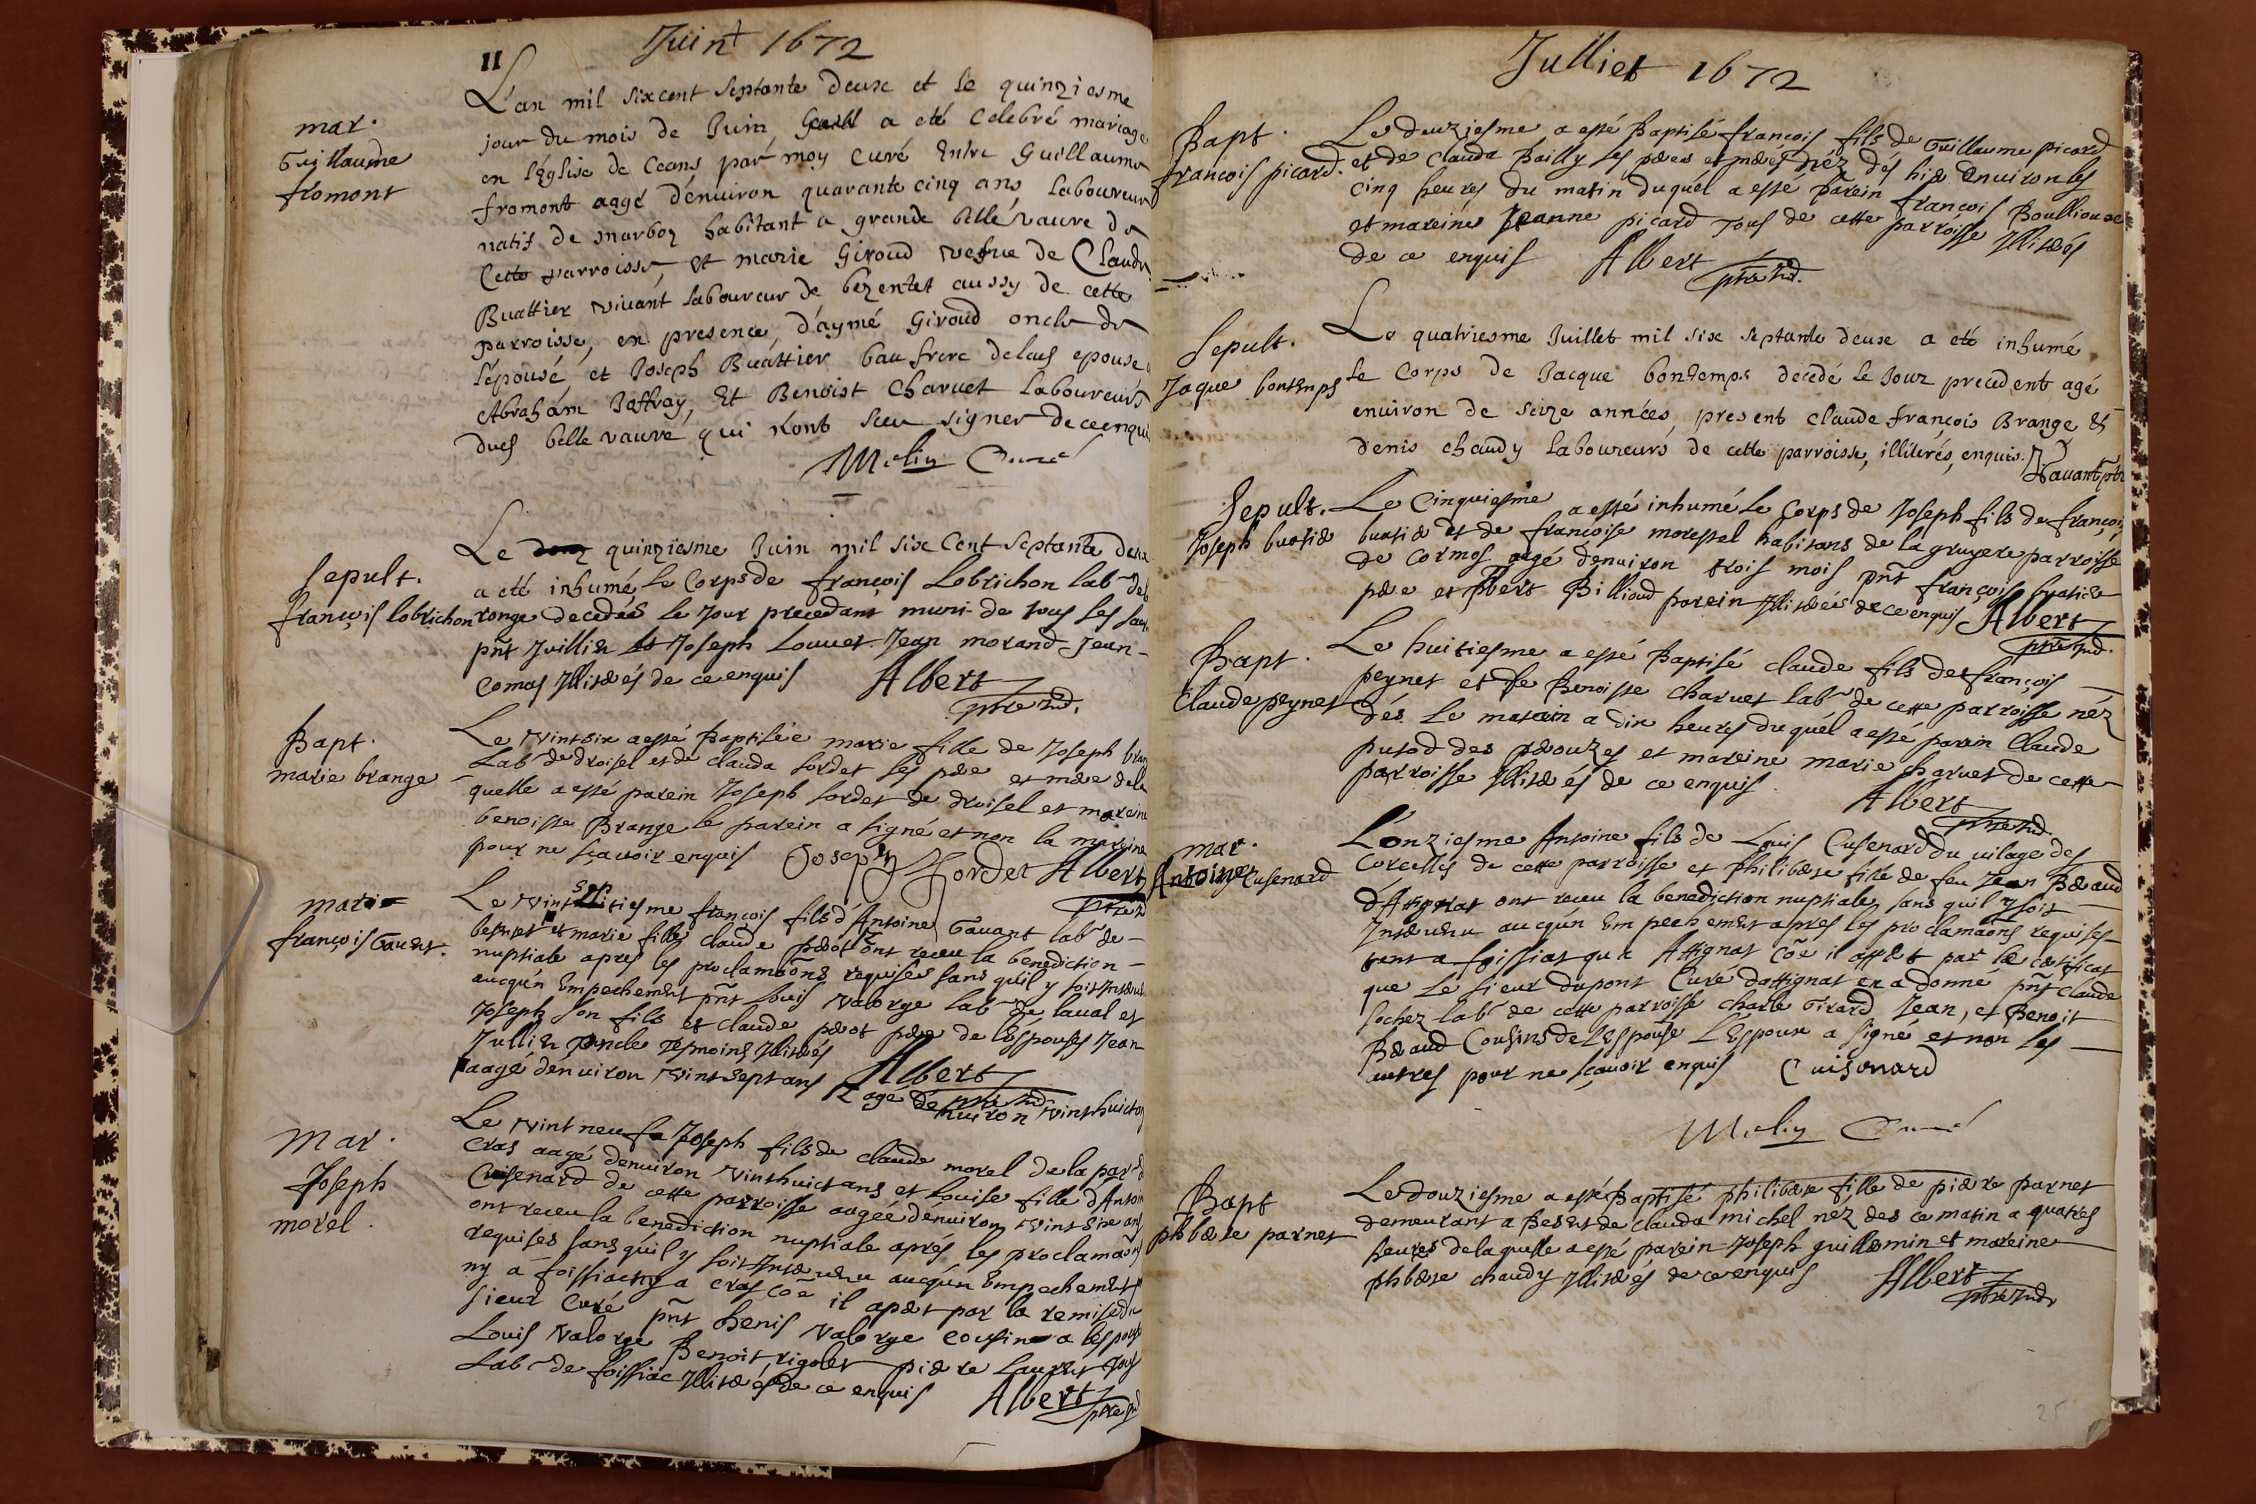 Juint 1672
II
mar.
Guillaume
fromont
L'an mil six cent septante deux et le quinziesme
jour du mois de Juin a eté celebré mariage
en l'Eglise de ceans par moy curé Entre Guillaume
fromont aagé d'enuiron quarante cinq ans laboureur
natif de marboz habitant a grande belle vaure de
Cette parroisse, et marie Giroud vefue de Claude
Buattier viuant laboureur de bezentet aussy de cette
parroisse, en presence, d'aymé Giroud oncle de
l'épouse, et Joseph Buattier bau frere delad epouse
Abraham Jaffray, Et Benoist Charuet laboureurs
dud belle vaure, qui n'ont sceu signer de ce enqui
Melin Curé
Sepult.
françois lobrichon
Le quinziesme Juin mil six Cent septante deux
a eté inhumé le Corps de françois Lobrichon lab de
ronge decedé le Jour precedant muni de tous les sac
pnt Juillien Joseph Louuet Jean morand Jean
Comas Illiterés de ce enquis Albert
ptre Ind.
Bapt.
marie brange
Le vintsix a esté Baptisée marie fille de Joseph bran
Lab de droisel et de clauda sordet ses pere et mere de la
quelle a esté parein Joseph sordet de droisel et mareine
benoiste Brange le parein a signé et non la mareine
pour ne sçauoir enquis Joseph Sordet Albert
ptre
mar
françois Gauant.
Le vint sep françois fils d'Antoine Gauant lab de
besnet et marie fille claude perot ont receu la benediction
nuptiale apres les proclamaõns requises sans qu'il y soit Interuen
aucqun Empechement pnt Louis Valorge lab de laual et
Joseph son fils et claude perot pere de l'Espouse Jean
Jullien oncle tesmoins Illiterés
aagé d'enuiron vintsept ans Albert
agé de ptre Ind
nuiron vinthuict
Mar.
Joseph
morel.
Le vint neuf Joseph fils de claude morel de la par
Cras aagé denuiron vinthuict ans et Louise fille d'Antoin
Cusenard de cette parroisse aagée d'enuiron vint six ans
ont receu la benediction nuptiale aprés les proclamaõn
requises sans qu'il y soit Interuenu aucqun Empechement
ny a foissiac ny a cras cõe il apert par la remise du
sieur Curé pnt Denis Valorge cousin a lespouse
Louis Valorge Benoit rigolet piere Laurent tous
Lab de foissiac Illiterés de ce enquis Albert
ptre
Julliet 1672
Bapt.
francois picard.
Le deuziesme a esté Baptisé françois fils de Guillaume picard
et de Clauda Bailly ses peres et meres néz dés hier Enuiron les
cinq heures du matin duquél a esté parein françois Boulliouze
et mareine Jeanne picard tous de cette parroisse Illiterés
de ce enquis Albert
ptre Ind.
Sepult.
Jaque bontemps
Le quatriesme Juillet mil six septante deux a eté inhumé
le Corps de Jacque bontemps decedé le Jour precedent agé
enuiron de seize années, present claude françois Brange Et
denis chaudy laboureurs de cette parroisse, illiterés, enquis
Sepult.
Joseph buatier
Le Cinquiesme a esté inhumé le Corps de Joseph fils de françois
buatier et de françoise morestel habitans de la gruyere parroisse
de Cormos aagé denuiron trois mois pnt françois buatier
pere et Pbert Billioud parein Illiterés de ce enquis Albert
ptre Ind.
Bapt.
Claude peynet
Le huitiesme a esté Baptisé claude fils de françois
peynet et de Benoiste charuet lab de cette parroisse néz
dés le matain a dix heures duquél a esté parein Claude
putod des perouzes et mareine marie charuet de cette
parroisse Illiterés de ce enquis
Albert
ptre Ind.
mar.
Antoine Cusenard
L'onziesme Antoine fils de Louis Cusenard du vilage des
Corcelles de cette parroisse et Philiberte fille de feu Jean Beraud
d'Attignat ont receu la benediction nuptiale sans qu'il y soit
Interuenu aucqun Empechement apres les proclamaõns requises
tant a foissiat qu'a Attignat cõe il appert par le certificat
que le sieur dupont Curé dattignat en a donné pnt claude
sochez lab de cette parroisse charle Girard Jean, et Benoit
Beraud Cousins de L'Espouse L'Espoux a signé et non les
autres pour ne sçauoir enquis Cuisenard
Melin Curé
Bapt
phbere parnet
Le douziesme a esté Baptisé philiberte fille de pierre parnet
demeurant a Besent de clauda michel néz des ce matin a quatres
heures de laquelle a esté parein Joseph guillemin et mareine
phberte chaudy Illiterés de ce enquis Albert
ptre Ind.
25